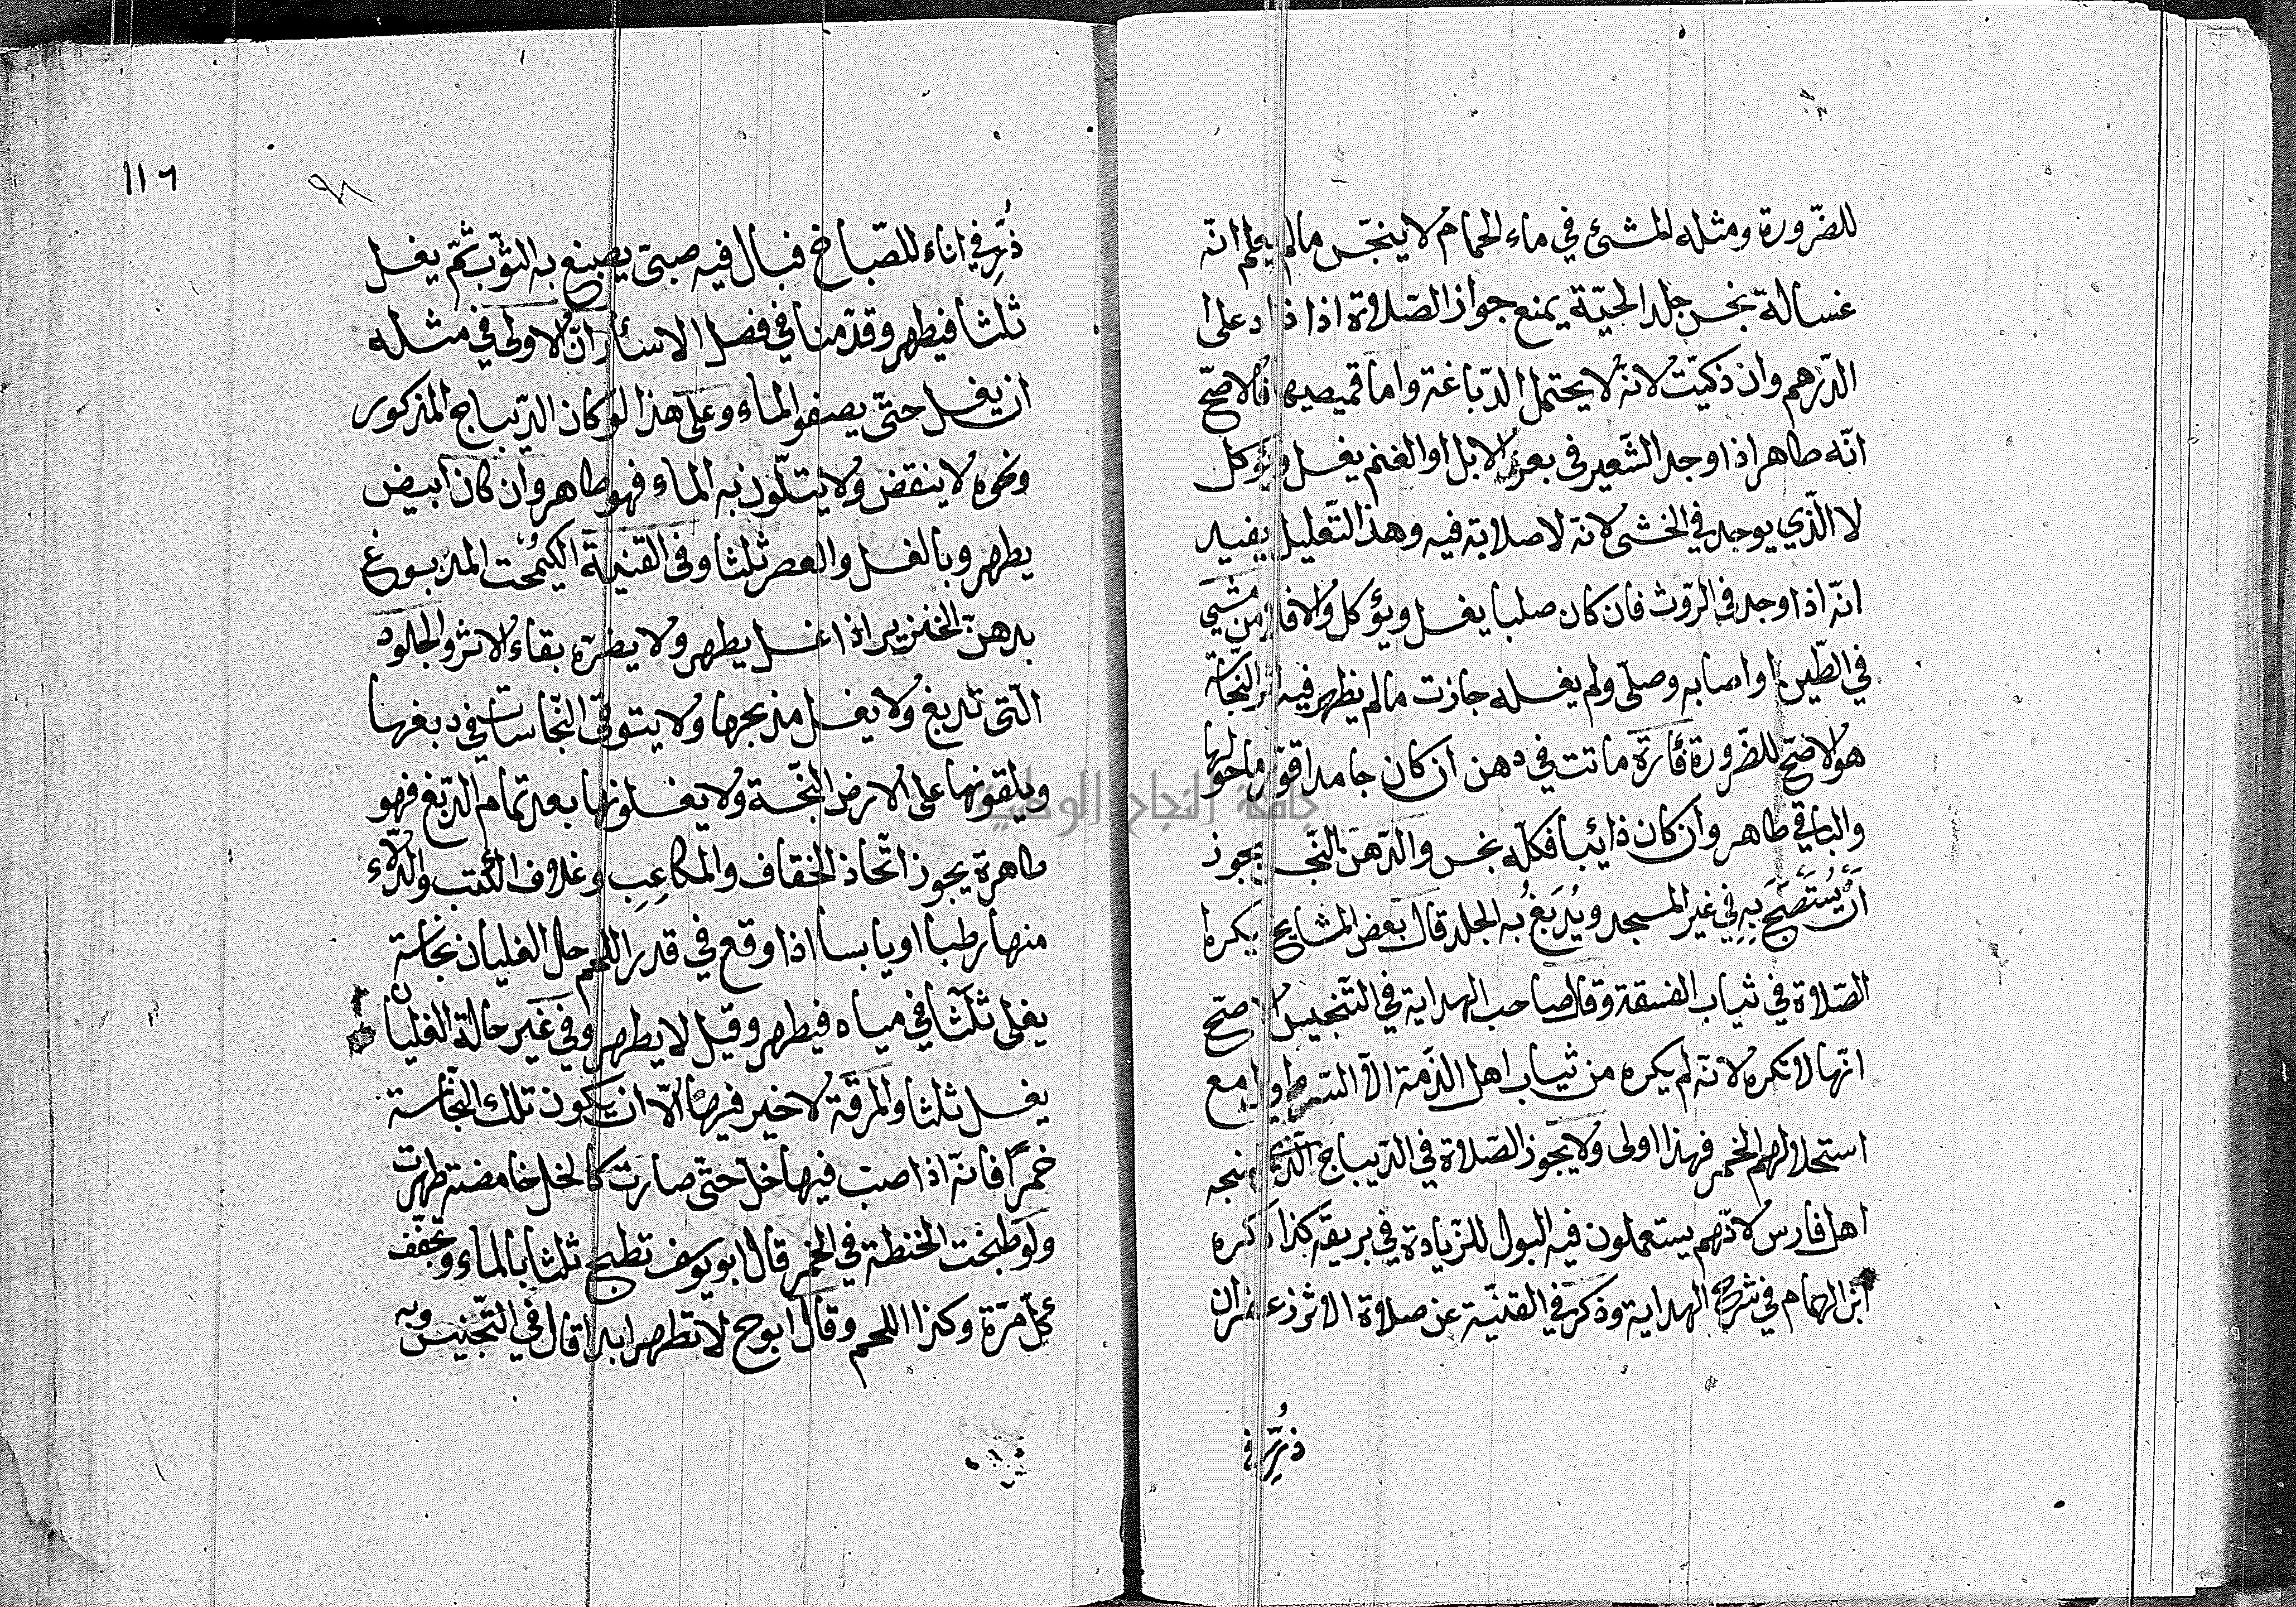 للضّرورة ومثله المشئ في ماء الحمام لا ينجّس مالم يعلم انّه
غسالة نجس جلد الحيّة يمنع جواز الصّلاة اذا زاد على
الدّرهم وان ذكيت لانّه لا يحتمل الدّباغة واما قميصها فالاصحّ
انّه طاهر اذا وجد الشّعير فى بعر الابل او الغنم يغسل ويؤكل
لا الّذي يوجد في الخثى لانه لا صلابة فيه وهذا التّعليل يفيد
انّه اذا وجد فى الرّوث فان كان صلبا يغسل ويؤكل والا فلا ومن مشى
في الطّين او اصابه وصلّى ولم يغسله جازت مالم يظهر فيه اثر النّجاسة
هو الاصحّ للضّرورة فأرة ماتت في دهن ان كان جامدا قوّر ما حولها
والباقي طاهر وان كان ذائبا فكلّه نجس والدّهن النّجس يجوز
ان يُستَصبَح بِهِ في غير المسجد ويُدبَغُ به الجلد قال بعض المشايخ يكره
الصّلاة في ثياب الفسقة وقال صاحب الهداية في التّجنيس الاصحّ
انّها لا تكره لانّه لم يكره من ثياب اهل الذّمة الّا السّراويل مع
استحلالهم الخمر فهذا اولى ولا يجوز الصّلاة في الدّيباج الّذي ينسجه
اهل فارس لانّهم يستعملون فيه البول للزّيادة في بريقه كذا ذكره
ابن الهمام في شرح الهداية وذكر في القنيّة عن صلاة الاثر زعفران
ذُرِّ في
١١٦
ذُرِّ في اناء للصّباغ فبال فيه صبىّ يصبغ به الثّوب ثمّ يغسل
ثلثا فيطهر وقد قدّمنا في فصل الاسئار انّ الاولى في مثله
ان يغسل حتّى يصفو الماء وعلى هذا لو كان الدّيباج المذكور
ونحوه لا ينقض ولا يتلّون به الماء فهو طاهر وان كان ابيض
يطهر وبالغسل والعصر ثلثا وفى القنية الكيمُخت المدبوغ
بدهن الخنزير اذا غسل يطهر ولا يضرّه بقاء الاثر والجلود
الّتى تدبغ ولا يغسل مذبحها ولا يتوقى النّجاسات في دبغها
ويلقونها على الارض النّجسة ولا يغسلونها بعد تمام الدّبغ فهو
طاهرة يجوز اتّخاذ الخفاف والمكاعِبِ وغلاف الكُتب والدِّلاء
منها رطبا او يابسا اذا وقع في قدر اللحم حال الغليان نجاسة
يغلى ثلثا في مياه فيطهر وقيل لا يطهر وفي غير حالة الغليان
يغسل ثلثا والمرقة لا خير فيها الّا ان يكون تلك النّجاسة
خمرًا فانّه اذا صب فيها خلّ حتّى صارت كالخل حامضة طهرت
ولو طبخت الحنطة في الخمر قال ابو يوسف تطبخ ثلثا بالماء وتجفّف
كلّ مرّة وكذا اللحم وقال ابو ح لا تطهر ابدا قال في التّجنيس وبه
جامعة النجاح الوطنية